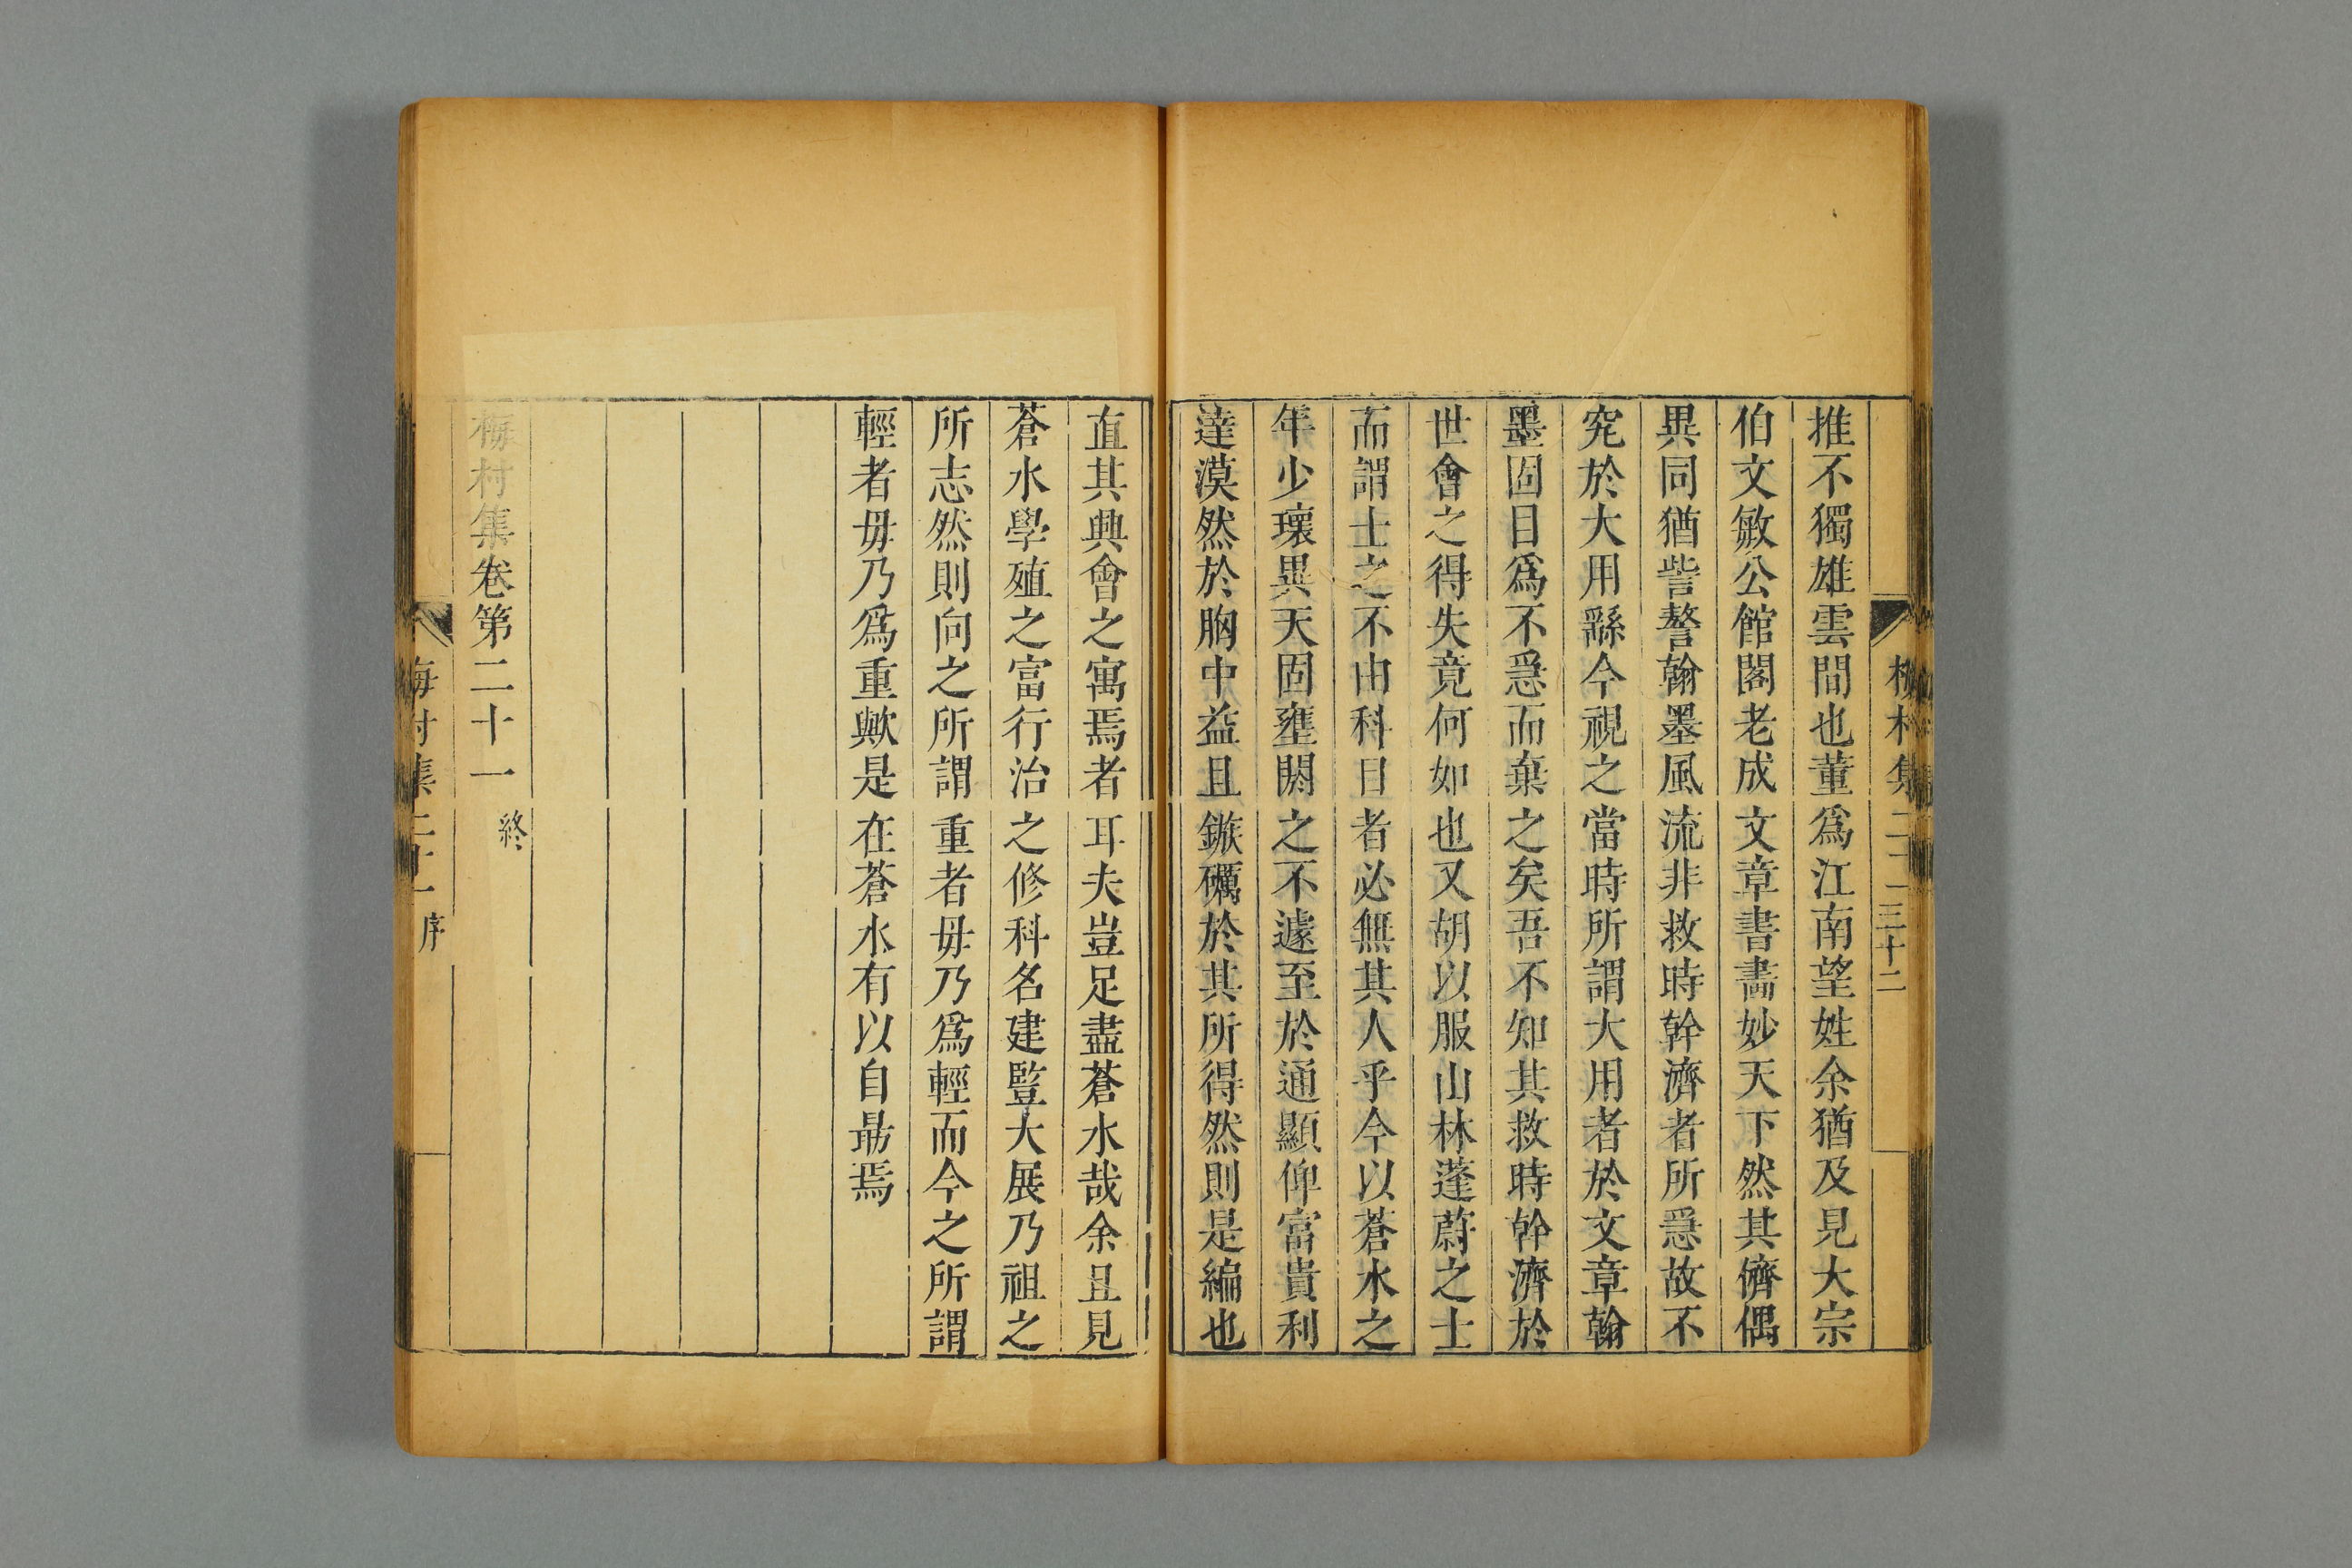 梅村集 二十一 三十二
推不獨雄雲間也董爲江南望姓余猶及見大宗
伯文敏公館閣老成文章書畵妙天下然其儕偶
異同猶訾謷翰墨風流非救時幹濟者所急故不
究於大用繇今視之當時所謂大用者於文章翰
墨固目爲不急而棄之矣吾不知其救時幹濟於
世會之得失竟何如也又胡以服山林蓬蔚之士
而謂士之不由科目者必無其人乎今以蒼水之
年少瓌異天固壅閼之不遽至於通顯仰富貴利
達漠然於胸中益且鏃礪於其所得然則是編也
直其興會之寓焉者耳夫豈足盡蒼水哉余且見
蒼水學殖之富行治之修科名建豎大展乃祖之
所志然則向之所謂重者毋乃爲輕而今之所謂
輕者毋乃爲重歟是在蒼水有以自勗焉
梅村集卷第二十一 終
梅村集 二十一 序